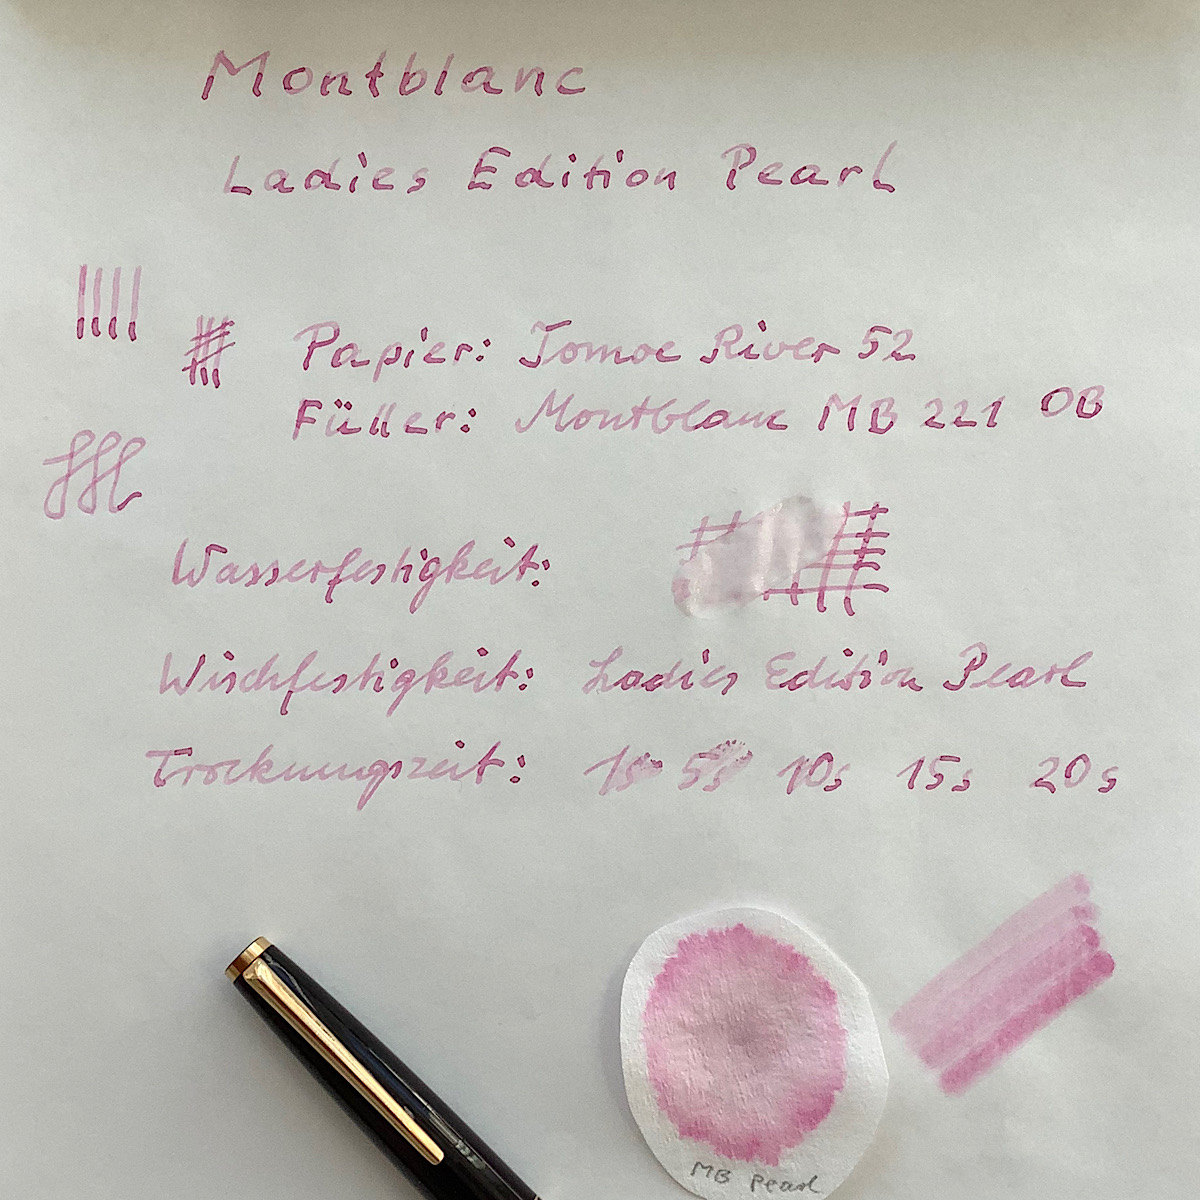 Montblanc
Ladies Edition Pearl
Papier: Tomoe River 52
Füller: Montblanc MB 221 OB
Wasserfestigkeit:
Wischfestigkeit: Ladies Edition Pearl
Trocknungszeit: 1s 5s 10s 15s 20s
MB Pearl